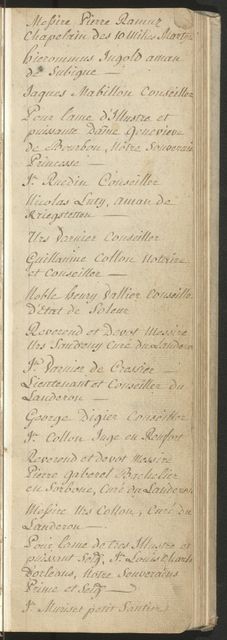 Messire Pierre Ramuz
Chapelain des 10 Milles Martyr
hieronimus Ingold aman
de Subigue —
Jaques Mabillon Conseillor
Pour lame d'Illustre et
puissante Dame Genevieve
de Bourbon, Nôtre Souverain
Princesse —
Jn Ruedin Conseillor
Nicolas Lury, aman de
Kriegstetten —
Urs Varnier Conseillor
Guillaume Collon Notaire
et Conseillor —
Noble henry Vallier Conseille
d'Etat de Soleur
Reverend et Devot Messire
Urs Curé du Landeron
Jn Varnier de Cressier —
Lieutenant et Conseiller du
Landeron —
George Digier Conseillor
Jn Collon Juge en Renfort
Reverend et devot Messire
Pierre Gaberel Bachellier
en Sorbone, Curé du Landeron
Messire Urs Collon, Curé du
Landeron —
Pour lame de tres Illustre et
puissant Seigr, Jn Louis Charles
D'orleans, Nôtre Souverains
Prince et Seigr —
Jn Muriset petit Sautier